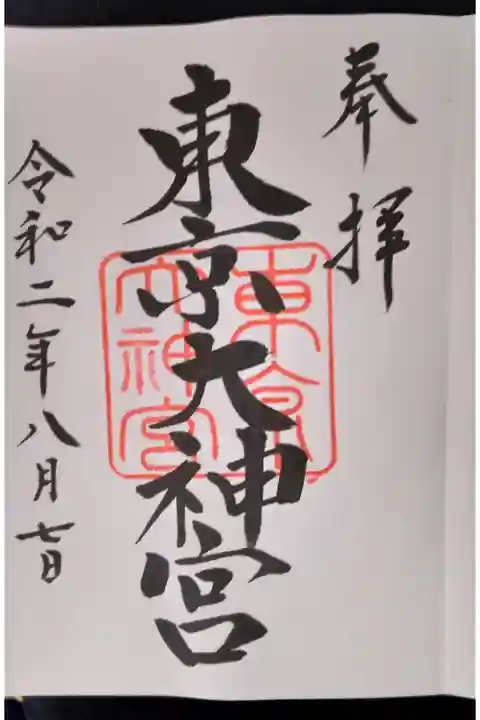 奉拝
東京大神宮
東京大神宮
令和二年八月七日